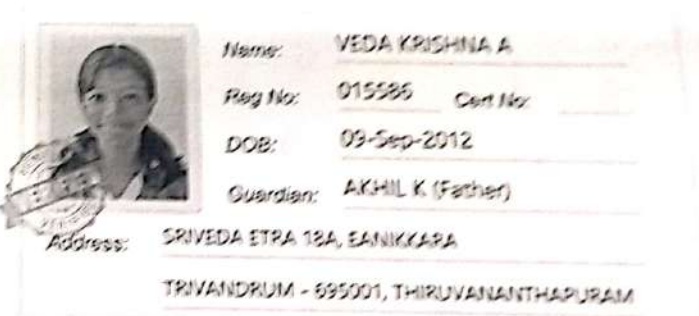 Name: VEDA KRISHNA A
Reg No: 015586 Cert No:
DOB: 09-Sep-2012
Guardian: AKHIL K (Father)
Address: SRIVEDA ETRA 18A, EANIKKARA
TRIVANDRUM - 695001, THIRUVANANTHAPURAM